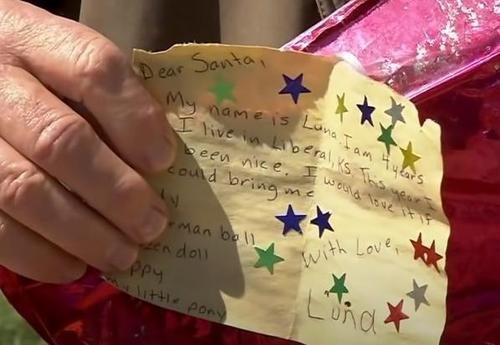 Dear Santa,
My name is Luna. I am 4 years
I live in Liberal, KS. This year I
been nice. I would love it if
could bring me
rman ball
zen doll
ppy
my little pony
With Love,
Luna